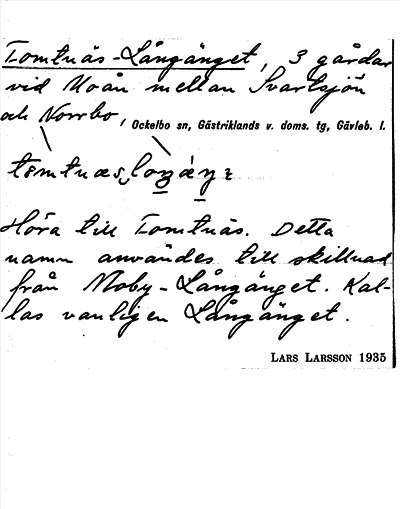 Tomtnäs-Långänget, 3 gårdar
vid Moån mellan Svartsjön
och Norrbo, Ockelbo sn, Gästriklands v. doms. tg, Gävleb. l.
Höra till Tomtnäs. Detta
namn användes till skillnad
från Moby-Långänget. Kal-
las vanligen Långänget.
LARS LARSSON 1935